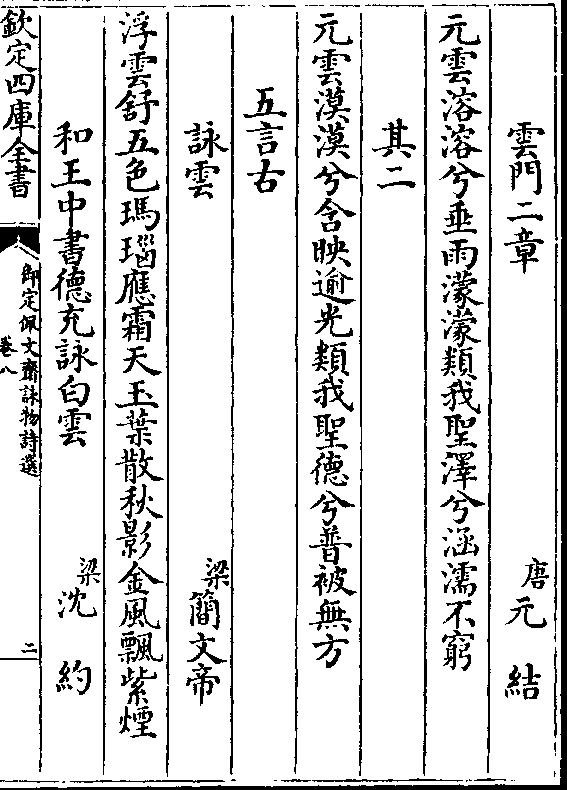 雲門二章 唐元結
元雲溶溶兮垂雨濛濛類我聖澤兮涵濡不窮
其二
元雲漠漠兮含映逾光類我聖德兮普被無方
五言古
詠雲 梁簡文帝
浮雲舒五色瑪瑙應霜天玉葉散秋影金風飄紫煙
和王中書德充詠白雲 梁沈約
欽定四庫全書
御定佩文齋詠物詩選
卷八
二